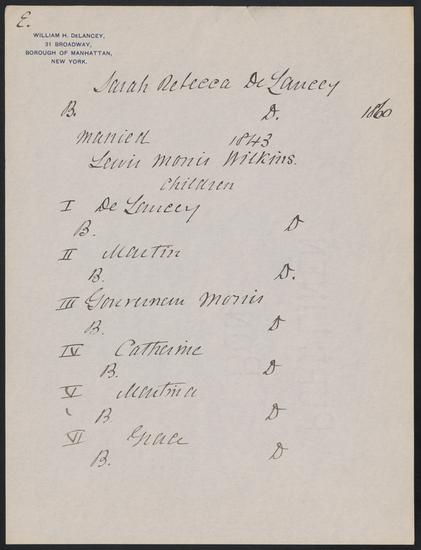 E.
WILLIAM H. DELANCEY,
31 BROADWAY,
BOROUGH OF MANHATTAN,
NEW YORK.
Sarah Rebecca De Lancey
B. D. 1860
Married 1843
Lewis Morris Wilkins.
Children
I De Lancey
B. D
II Martin
B. D.
III Gouverneur Morris
B. D
IV Catherine
B. D
V Martina
B. D
VI Grace
B. D